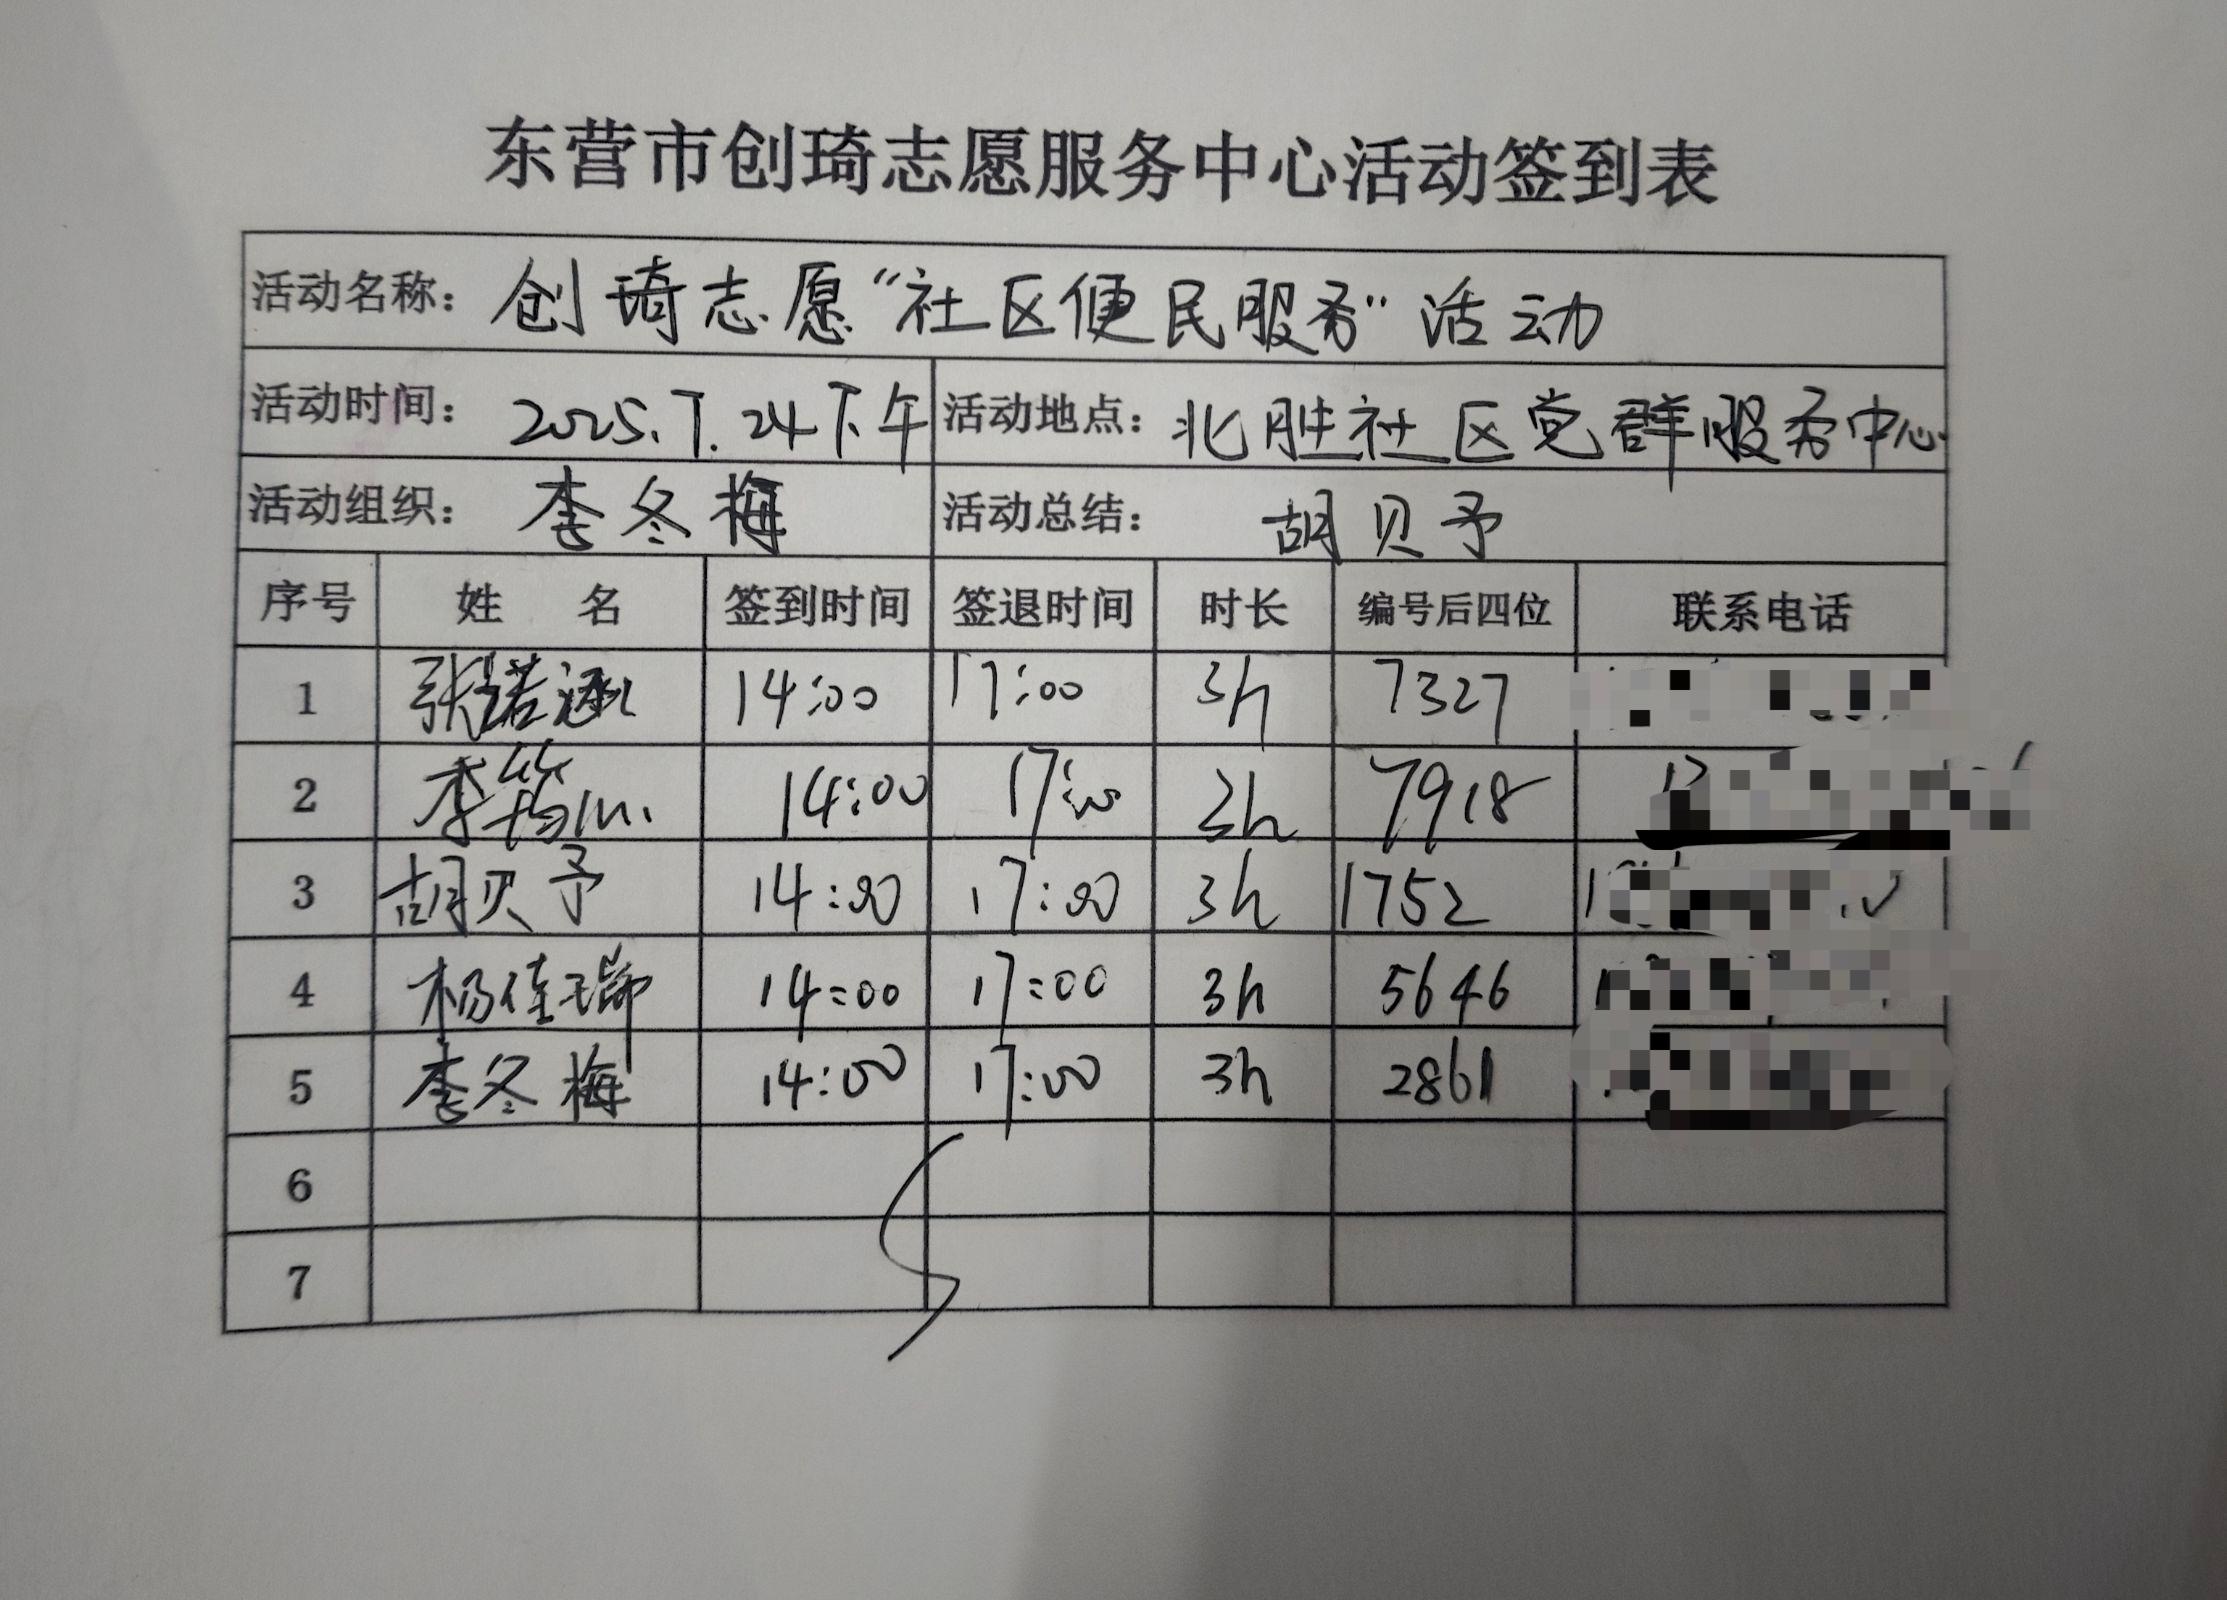 东营市创琦志愿服务中心活动签到表
活动名称：创琦志愿“社区便民服务”活动
活动时间：2025.7.24下午 活动地点：北胜社区党群服务中心
活动组织：李冬梅 活动总结：胡贝予
序号 姓 名 签到时间 签退时间 时长 编号后四位 联系电话
1 张诺涵 14:00 17:00 3h 7327
2 李筠 14:00 17:00 3h 7918
3 胡贝予 14:00 17:00 3h 1752
4 杨佳瑞 14:00 17:00 3h 5646
5 李冬梅 14:00 17:00 3h 2861
6
7